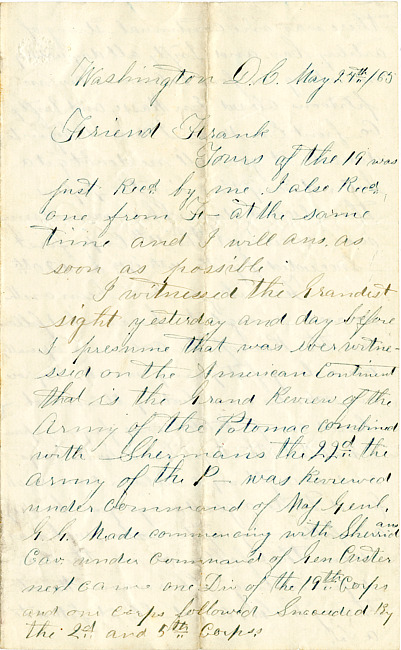 Washington D.C. May 25th /65
Friend Frank
Yours of the 19 was
just Recd by me I also Recd
one from F— at the same
time and I will ans. as
soon as possible.
I witnessed the Grandist
sight yesterday and day before
I presume that was ever witne-
ssed on the American Continent
that is the Grand Review of the
Army of the Potomac combined
with Shermans the 22d the
Army of the P— was Reviewed
under command of Maj Genl.
G. G. Meade commencing with Sherridans
Cav. under Command of Gen Custer
next came one Div of the 19th Corps
and one corps followed Suceeded By
the 2d and 5th Corpss